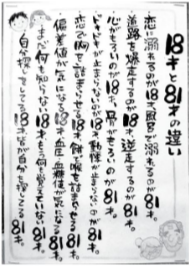 18才と81才の違い
恋に溺れるのが18才、風呂で溺れるのが81才。
道路を暴走するのが18才、逆走するのが81才。
心がもろいのが18才、骨がもろいのが81才。
ドキドキが止まらないのが18才、動悸が止まらないのが81才。
恋で胸を詰まらせる18才、餅で喉を詰まらせる81才。
偏差値が気になる18才、血圧・血糖値が気になる81才。
まだ何も知らない18才、もう何も覚えていない81才。
自分探しをしてる18才、皆が自分を探してる81才。